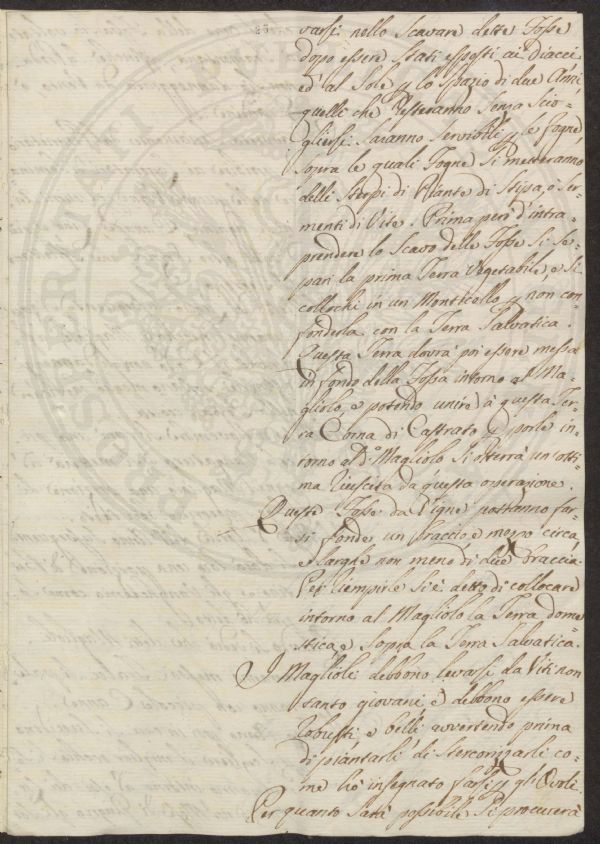 varsi nello Scavare dette Fosse
dopo essere Stati esposti ai Diacci,
ed al Sole p lo Spazio di due Anni
quelli che Resteranno Senza Scio-
gliersi Saranno Servibili p le Fogne
Sopra le quali Fogne Si metteranno
delli Sterpi di Piante di Stipa, o Ser-
menti di Vite. Prima però d'intra-
prendere lo Scavo delle Fosse Si Se-
pari la prima Terra Vegetabile, e Si
collochi in un Monticello p non con-
fonderla con la Terra Salvatica.
Questa Terra dovrà poi essere messa
in fondo della Fossa intorno al Ma-
gliolo, e potendo unire à questa Ter-
ra Corna di Castrato p porle in-
torno al D.o Magliolo Si otterrà un'otti-
ma Riuscita da questa operazione.
Queste Fosse da Vigne potranno far-
si fonde un braccio e mezzo circa,
e larghe non meno di due braccia.
Per riempirle Si è detto di collocare
intorno al Magliolo la Terra dome-
stica, e Sopra la Terra Salvatica.
I Maglioli debbono levarsi da Viti non
tanto giovani e debbono essere
Robusti e belli avvertendo prima
di piantarli di Stercomparli co-
me hò insegnato farsi p gli Ovoli.
Per quanto Sarà possibile Si procurerà